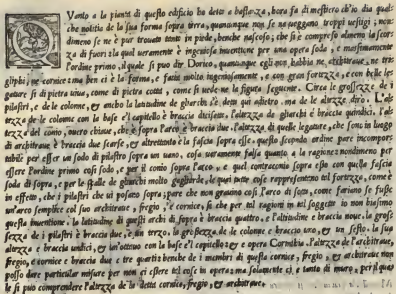 QVanto a la pianta di questo edificio ho detto a bastanza, hora fa di mestiero ch'io dia qualche
che notitia de la sua forma sopra terra, quantunque non se ne veggano troppi vestigi; nondimeno
dimeno se ne è pur trovato tanto in piede, benche nascoso, che si è compreso almeno la scorza
za di fuori: la qual veramente è ingeniosa inventione per una opera soda, e massimamente
l'ordine primo, il quale si puo dir Dorico, quantunque egli non habbia ne architrave, ne triglyphi
glyphi, ne cornice: ma ben ci è la forma, e fatta molto ingeniosamente, e con gran fortezza, e con belle legature
gature si di pietra viva, come di pietra cotta, come si vede ne la figura seguente. Circa le grossezze de i
pilastri, e de le colonne, & ancho la latitudine de gliarchi s'è detto qui adietro, ma de le altezze dirò. L'altezza
tezza de le colonne con la base e'l capitello è braccia diecisette. l'altezza de gliarchi è braccia quindici. l'altezza
tezza del conio, overo chiave, che è sopra l'arco è braccia due. l'altezza di quelle legature, che sono in luogo
di architrave è braccia due scarse, & altrettanto è la fascia sopra esse. questo secondo ordine pare incomportabile
tabile per esser un sodo di pilastro sopra un vano, cosa veramente falsa quanto a la ragione: nondimeno per
essere l'ordine primo così sodo, e per il conio sopra l'arco, e quel contraconio sopra esso con quella fascia
soda di sopra, e per le spalle de gliarchi molto gagliarde, le quai tutte cose rappresentano tal fortezza, come è
in effetto, che i pilastri che vi posano sopra; pare che non gravino cosi l'arco di sotto, come fariano se fusse
un'arco semplice col suo architrave, fregio, e cornice, si che per tal ragion in tal soggetto io non biasimo
questa inventione. la latitudine di questi archi di sopra è braccia quattro, e l'altitudine è braccia nove. la grossezza
sezza de i pilastri è braccia due, & un terzo. la grossezza de le colonne è braccio uno, & un sesto. la sua
altezza è braccia undici, & un'ottavo con la base e'l capitello: & è opera Corinthia. l'altezza de l'architrave,
fregio, e cornice è braccia due e tre quarti: benche de i membri di questa cornice, fregio, & architrave non
posso dare particular misure per non ci essere tal cose in opera: ma solamente ci è tanto di muro, per il quale
le si puo comprendere l'altezza de la detta cornice, fregio & architrave.